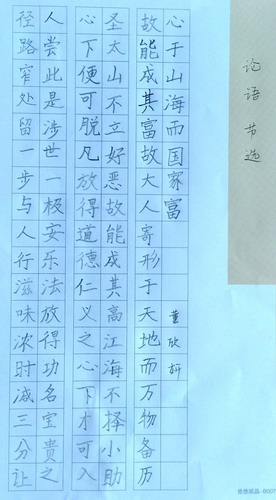 径路窄处留一步与人行滋味浓时减三分让
人尝此是涉世一极安乐法放得功名宝贵之
心下便可脱凡放得道德仁义之心下才可入
圣太山不立好恶故能成其高江海不择小助
故能成其富故大人寄形于天地而万物备历
心于山海而国家富
董欣妍
论语节选